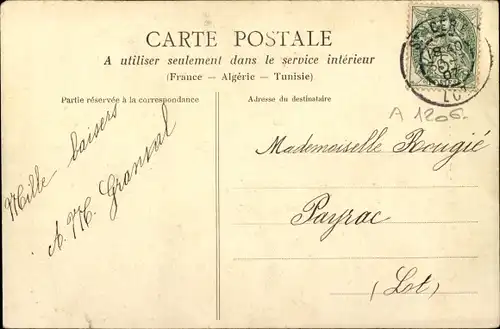 CARTE POSTALE
A utiliser seulement dans le service intérieur
(France — Algérie — Tunisie)
Partie réservée à la correspondance
Adresse du destinataire
A 1206.
Mille baisers
A. M. Granval
Mademoiselle Rougié
Payrac
(Lot)